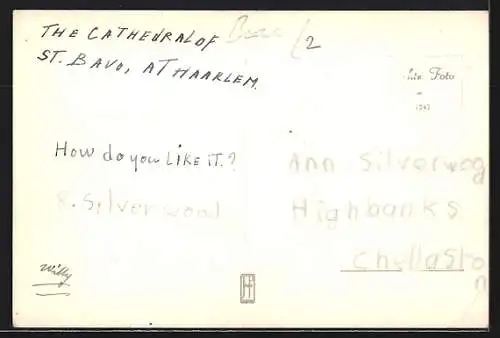 THE CATHEDRAL OF
ST. BAVO, AT HAARLEM.
2
Foto
How do you LIKE IT.?
R. Silverwood
Willy
Ann Silverwood
Highbanks
Chellaston